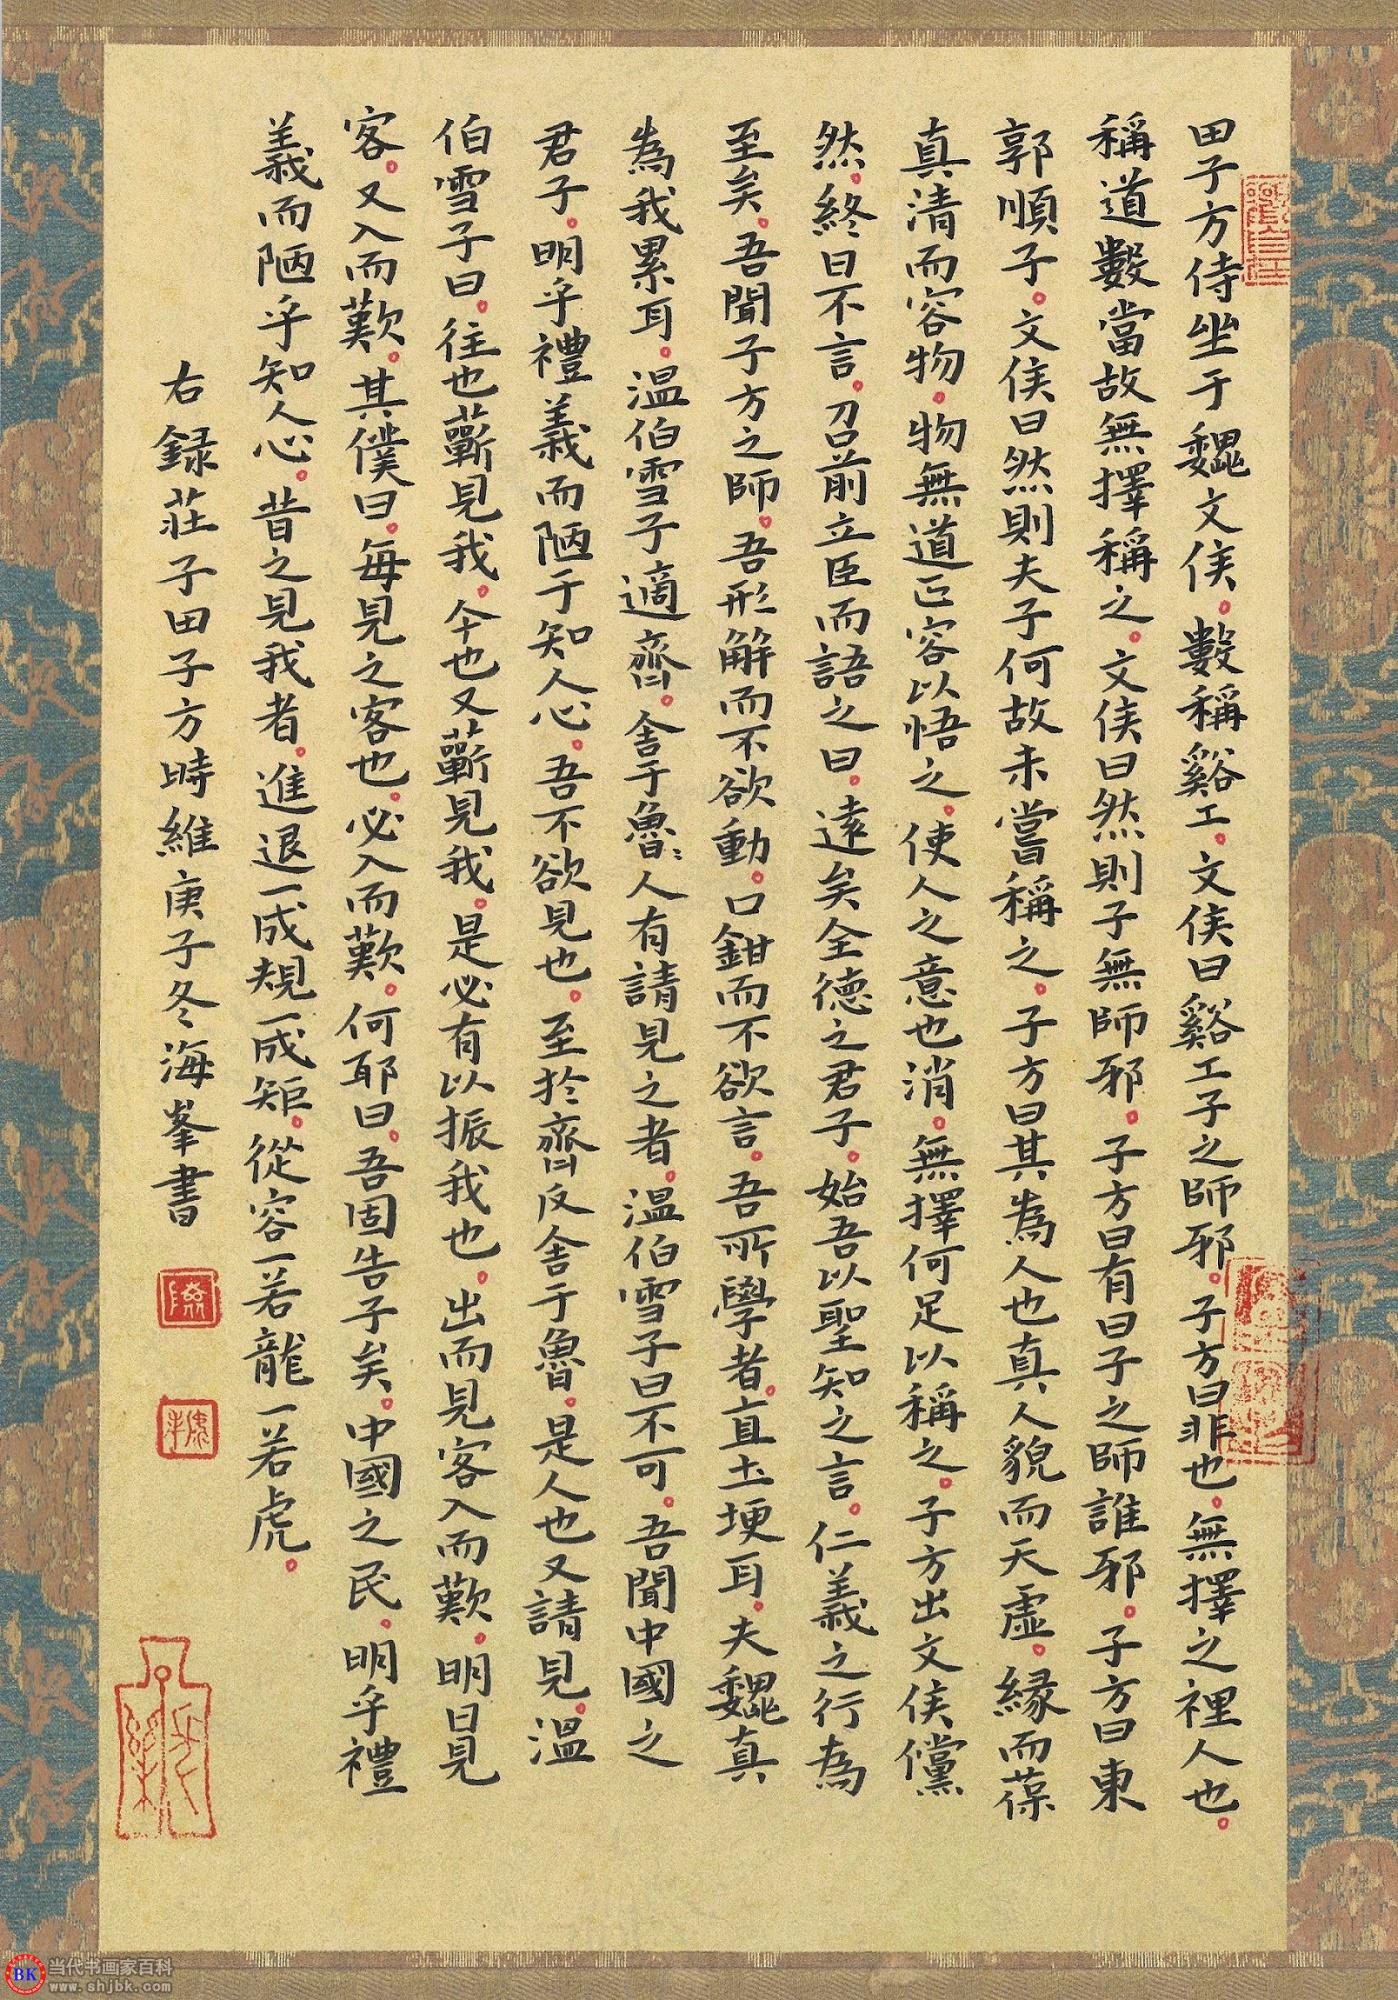 田子方侍坐于魏文侯。數稱谿工。文侯曰谿工子之師邪。子方曰非也。無擇之裡人也。
稱道數當故無擇稱之。文侯曰然則子無師邪。子方曰有曰子之師誰邪。子方曰東
郭順子。文侯曰然則夫子何故未嘗稱之。子方曰其為人也真人貌而天虛。緣而葆
真清而容物。物無道正容以悟之。使人之意也消。無擇何足以稱之。子方出文侯儻
然。終日不言。召前立臣而語之曰。遠矣全德之君子。始吾以聖知之言。仁義之行為
至矣。吾聞子方之師。吾形解而不欲動。口鉗而不欲言。吾所學者。直土埂耳。夫魏真
為我累耳。溫伯雪子適齊。舍于魯。魯人有請見之者。溫伯雪子曰不可。吾聞中國之
君子。明乎禮義而陋于知人心。吾不欲見也。至於齊反舍于魯。是人也又請見。溫
伯雪子曰。往也蘄見我。今也又蘄見我。是必有以振我也。出而見客入而歎。明日見
客。又入而歎。其僕曰。每見之客也。必入而歎。何耶曰。吾固告子矣。中國之民。明乎禮
義而陋乎知人心。昔之見我者。進退一成規一成矩。從容一若龍一若虎。
右録莊子田子方時維庚子冬海峯書
BK 当代书画家百科
www.shjbk.com